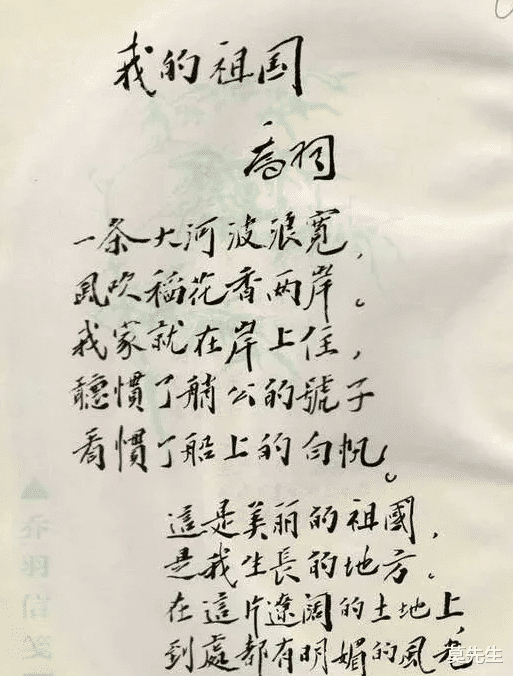 我的祖国
乔羽词
一条大河波浪寬，
風吹稻花香两岸。
我家就在岸上住，
聽慣了艄公的號子
看慣了船上的白帆。
這是美丽的祖國，
是我生長的地方。
在這片遼阔的土地上，
到處都有明媚的風光
莫先生